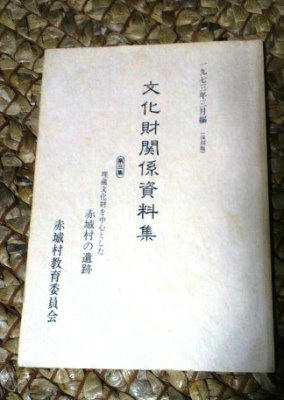 一九七三年三月編
文化財関係資料集
第三集
埋蔵文化財を中心とした
赤城村の遺跡
赤城村教育委員会